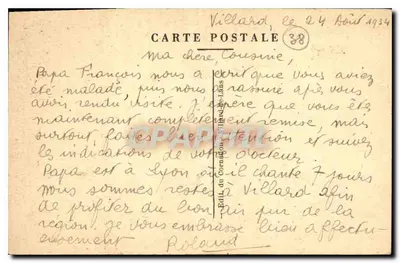 Villard, le 24 Août 1934
CARTE POSTALE
38
ma chère Cousine,
Papa François nous a écrit que vous aviez
été malade, puis nous a rassuré après vous
avoir rendu visite. J'espère que vous êtes
maintenant complètement remise, mais
surtout faites bien attention et suivez
les indications de votre docteur.
Papa est à Lyon où il chante 7 jours
nous sommes restés à Villard afin
de profiter du bon air pur de la
région. Je vous embrasse bien affectu-
eusement
Roland